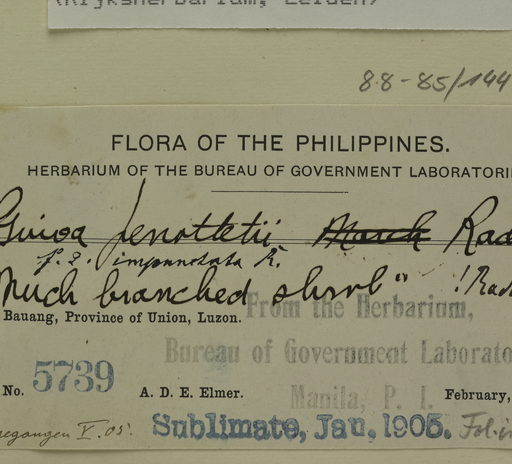 (Rijksherbarium, Leiden)
88-85/144
FLORA OF THE PHILIPPINES.
HERBARIUM OF THE BUREAU OF GOVERNMENT LABORATORI
Guioa Perrottetii March Rad
f. 2. impunctata R.
Much branched shrub" ! Rad
From the Herbarium,
Bauang, Province of Union, Luzon.
Bureau of Government Laborato
No. 5739 A. D. E. Elmer. February,
Manila, P. I.
Sublimate, Jan, 1905.
egangen X. 05.